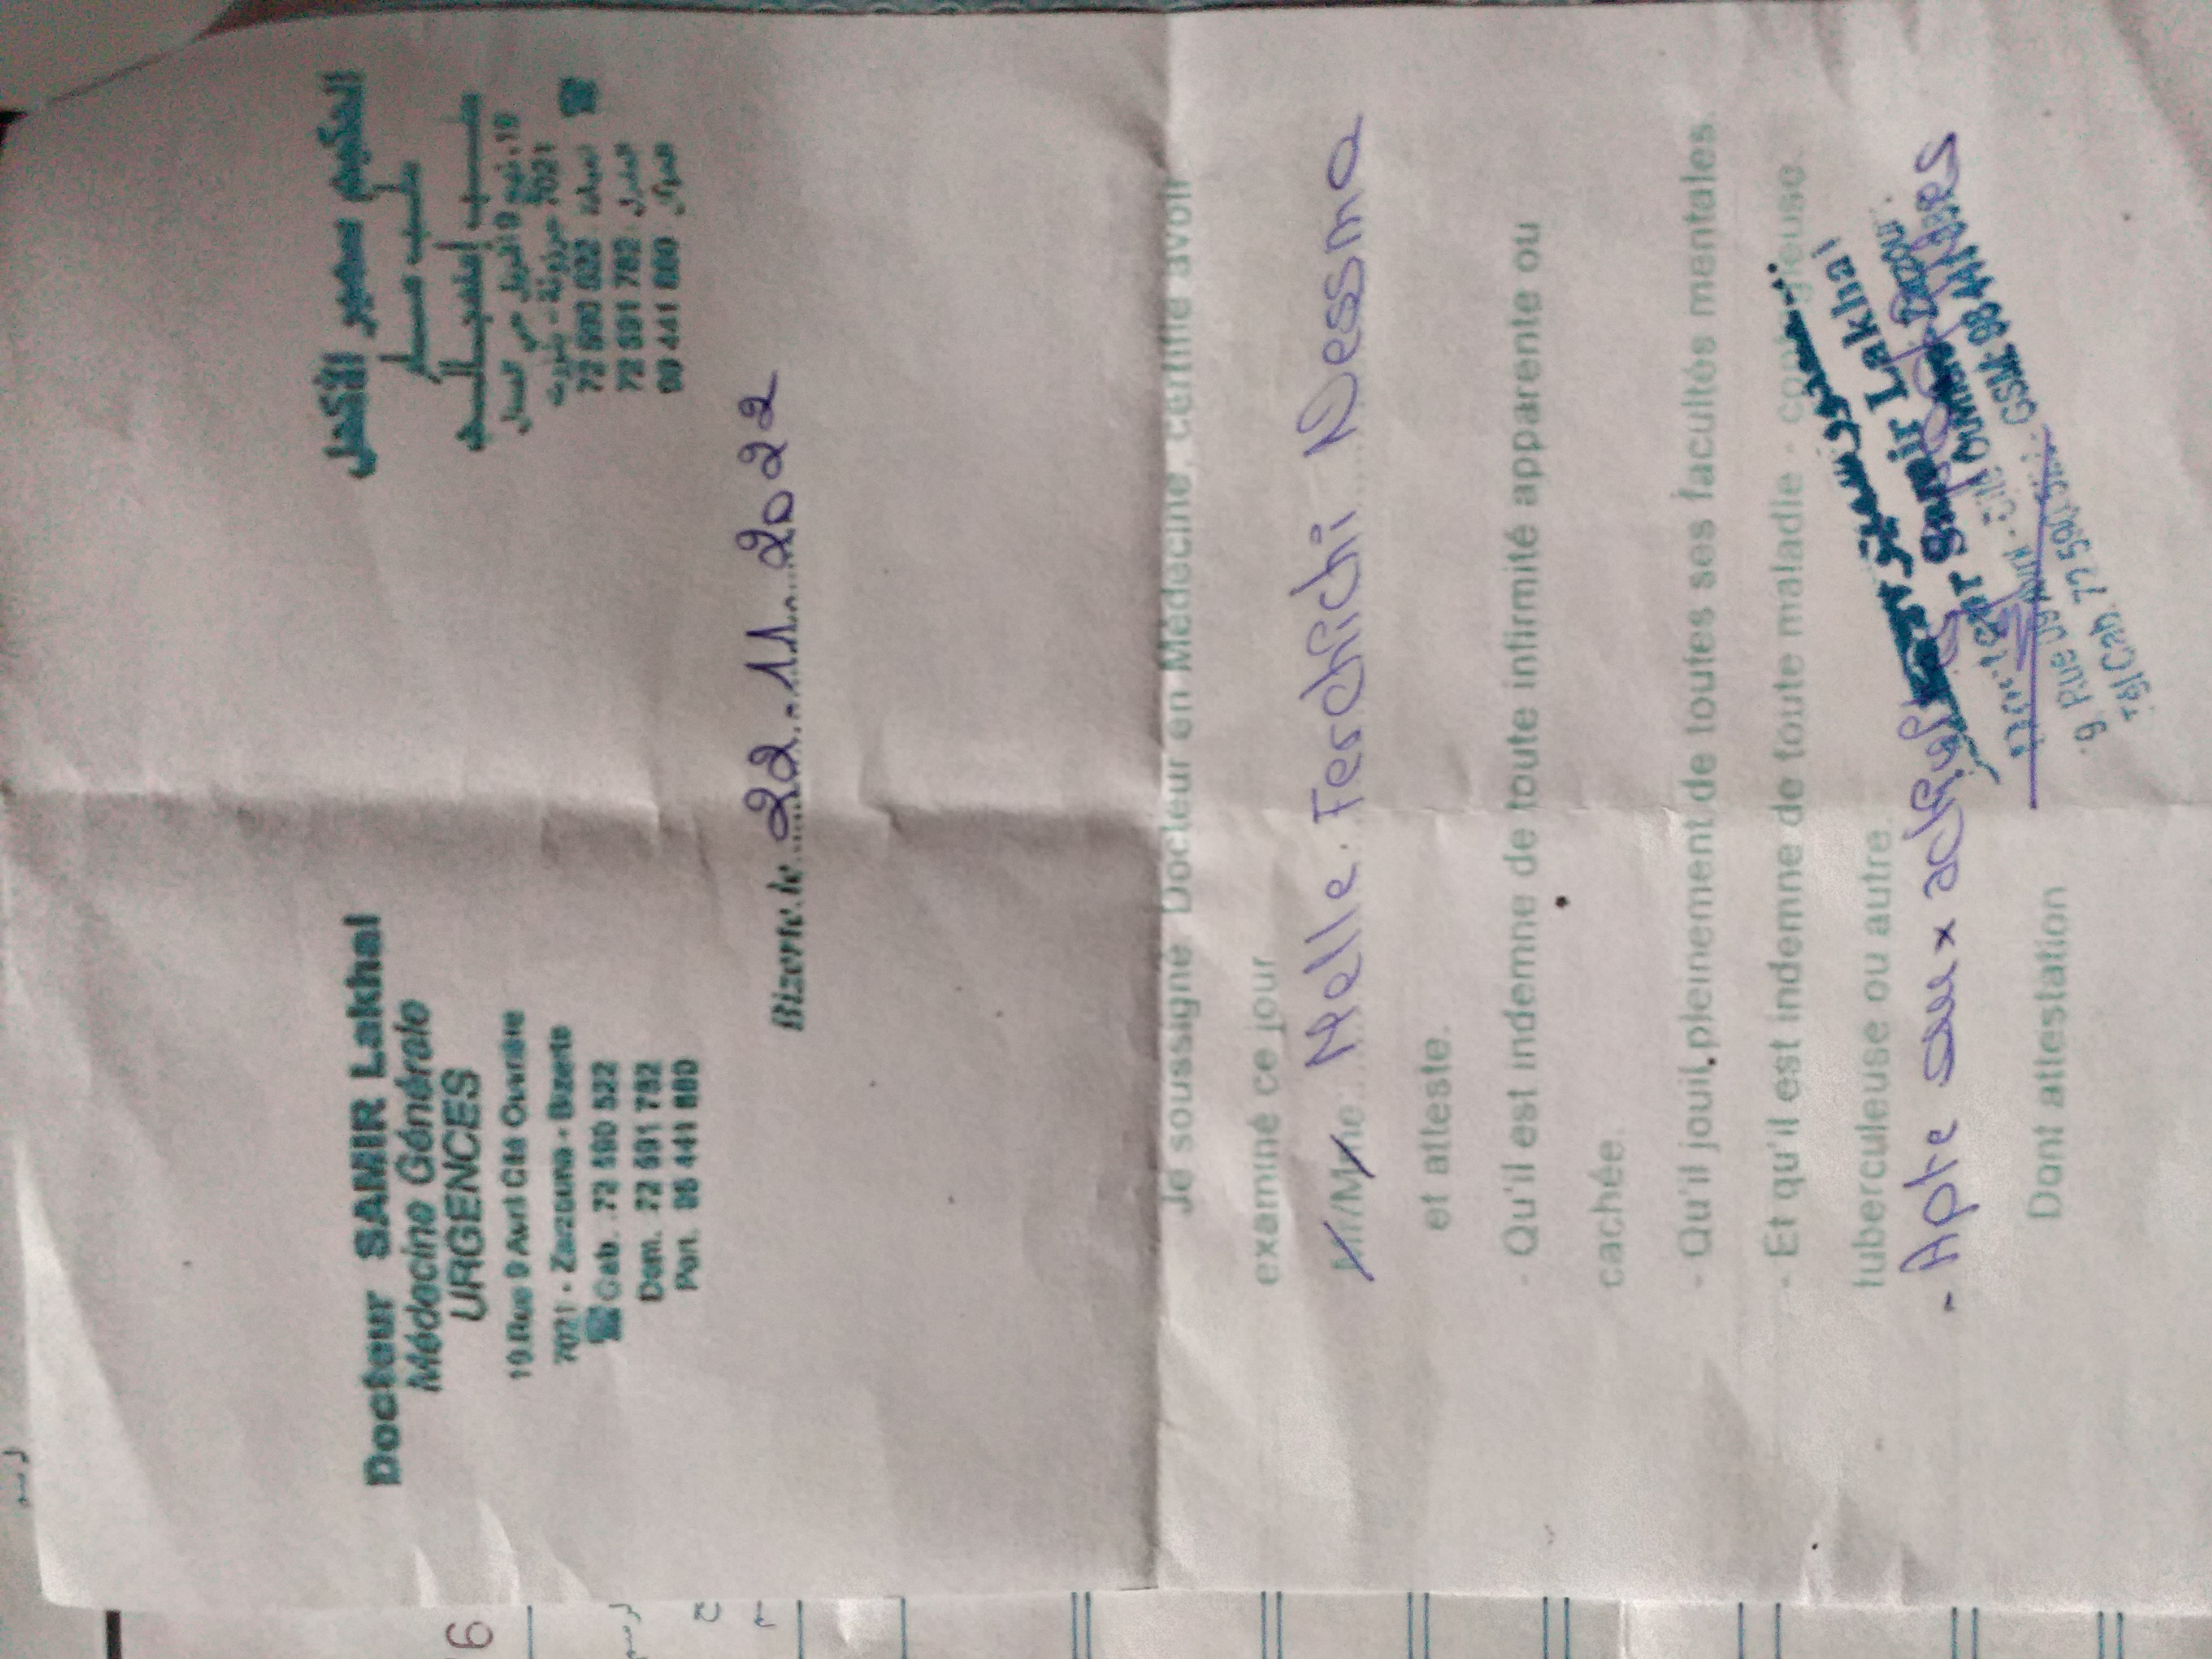 Docteur SAMIR Lakhal
Médecine Générale
URGENCES
19.Rue 9 Avril Cité Ouvrière
7021 - Zarzouna - Bizerte
☎ Cab. 72 590 522
Dom. 72 591 782
Port. 98 441 880
الحكيم سمير الأكحل
طب عام
طب إستعجالي
19، نهج 9 أفريل حي العمال
7021 جرزونة - بنزرت
72 591 782 المنزل
الجوال
Bizerte.le 22.11.2022
Je soussigné Docteur en Médecine, certifie avoir
examiné ce jour
Mr/Mme Melle Ferchichi Nessma
et atteste.
- Qu'il est indemne de toute infirmité apparente ou
cachée.
- Qu'il jouit pleinement de toutes ses facultés mentales.
- Et qu'il est indemne de toute maladie - contagieuse.
tuberculeuse ou autre.
- Apte aux
Dont attestation
Samir Lakhal
Rue 09 Avril - Cité
Tél Cab. 72 590 GSM. 98 441